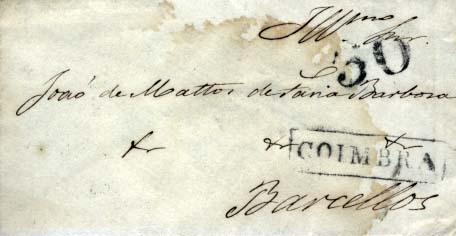 Illmo Snr.
50
João de Mattos de Faria Barbosa
&r &r &r
COIMBRA
Barcellos